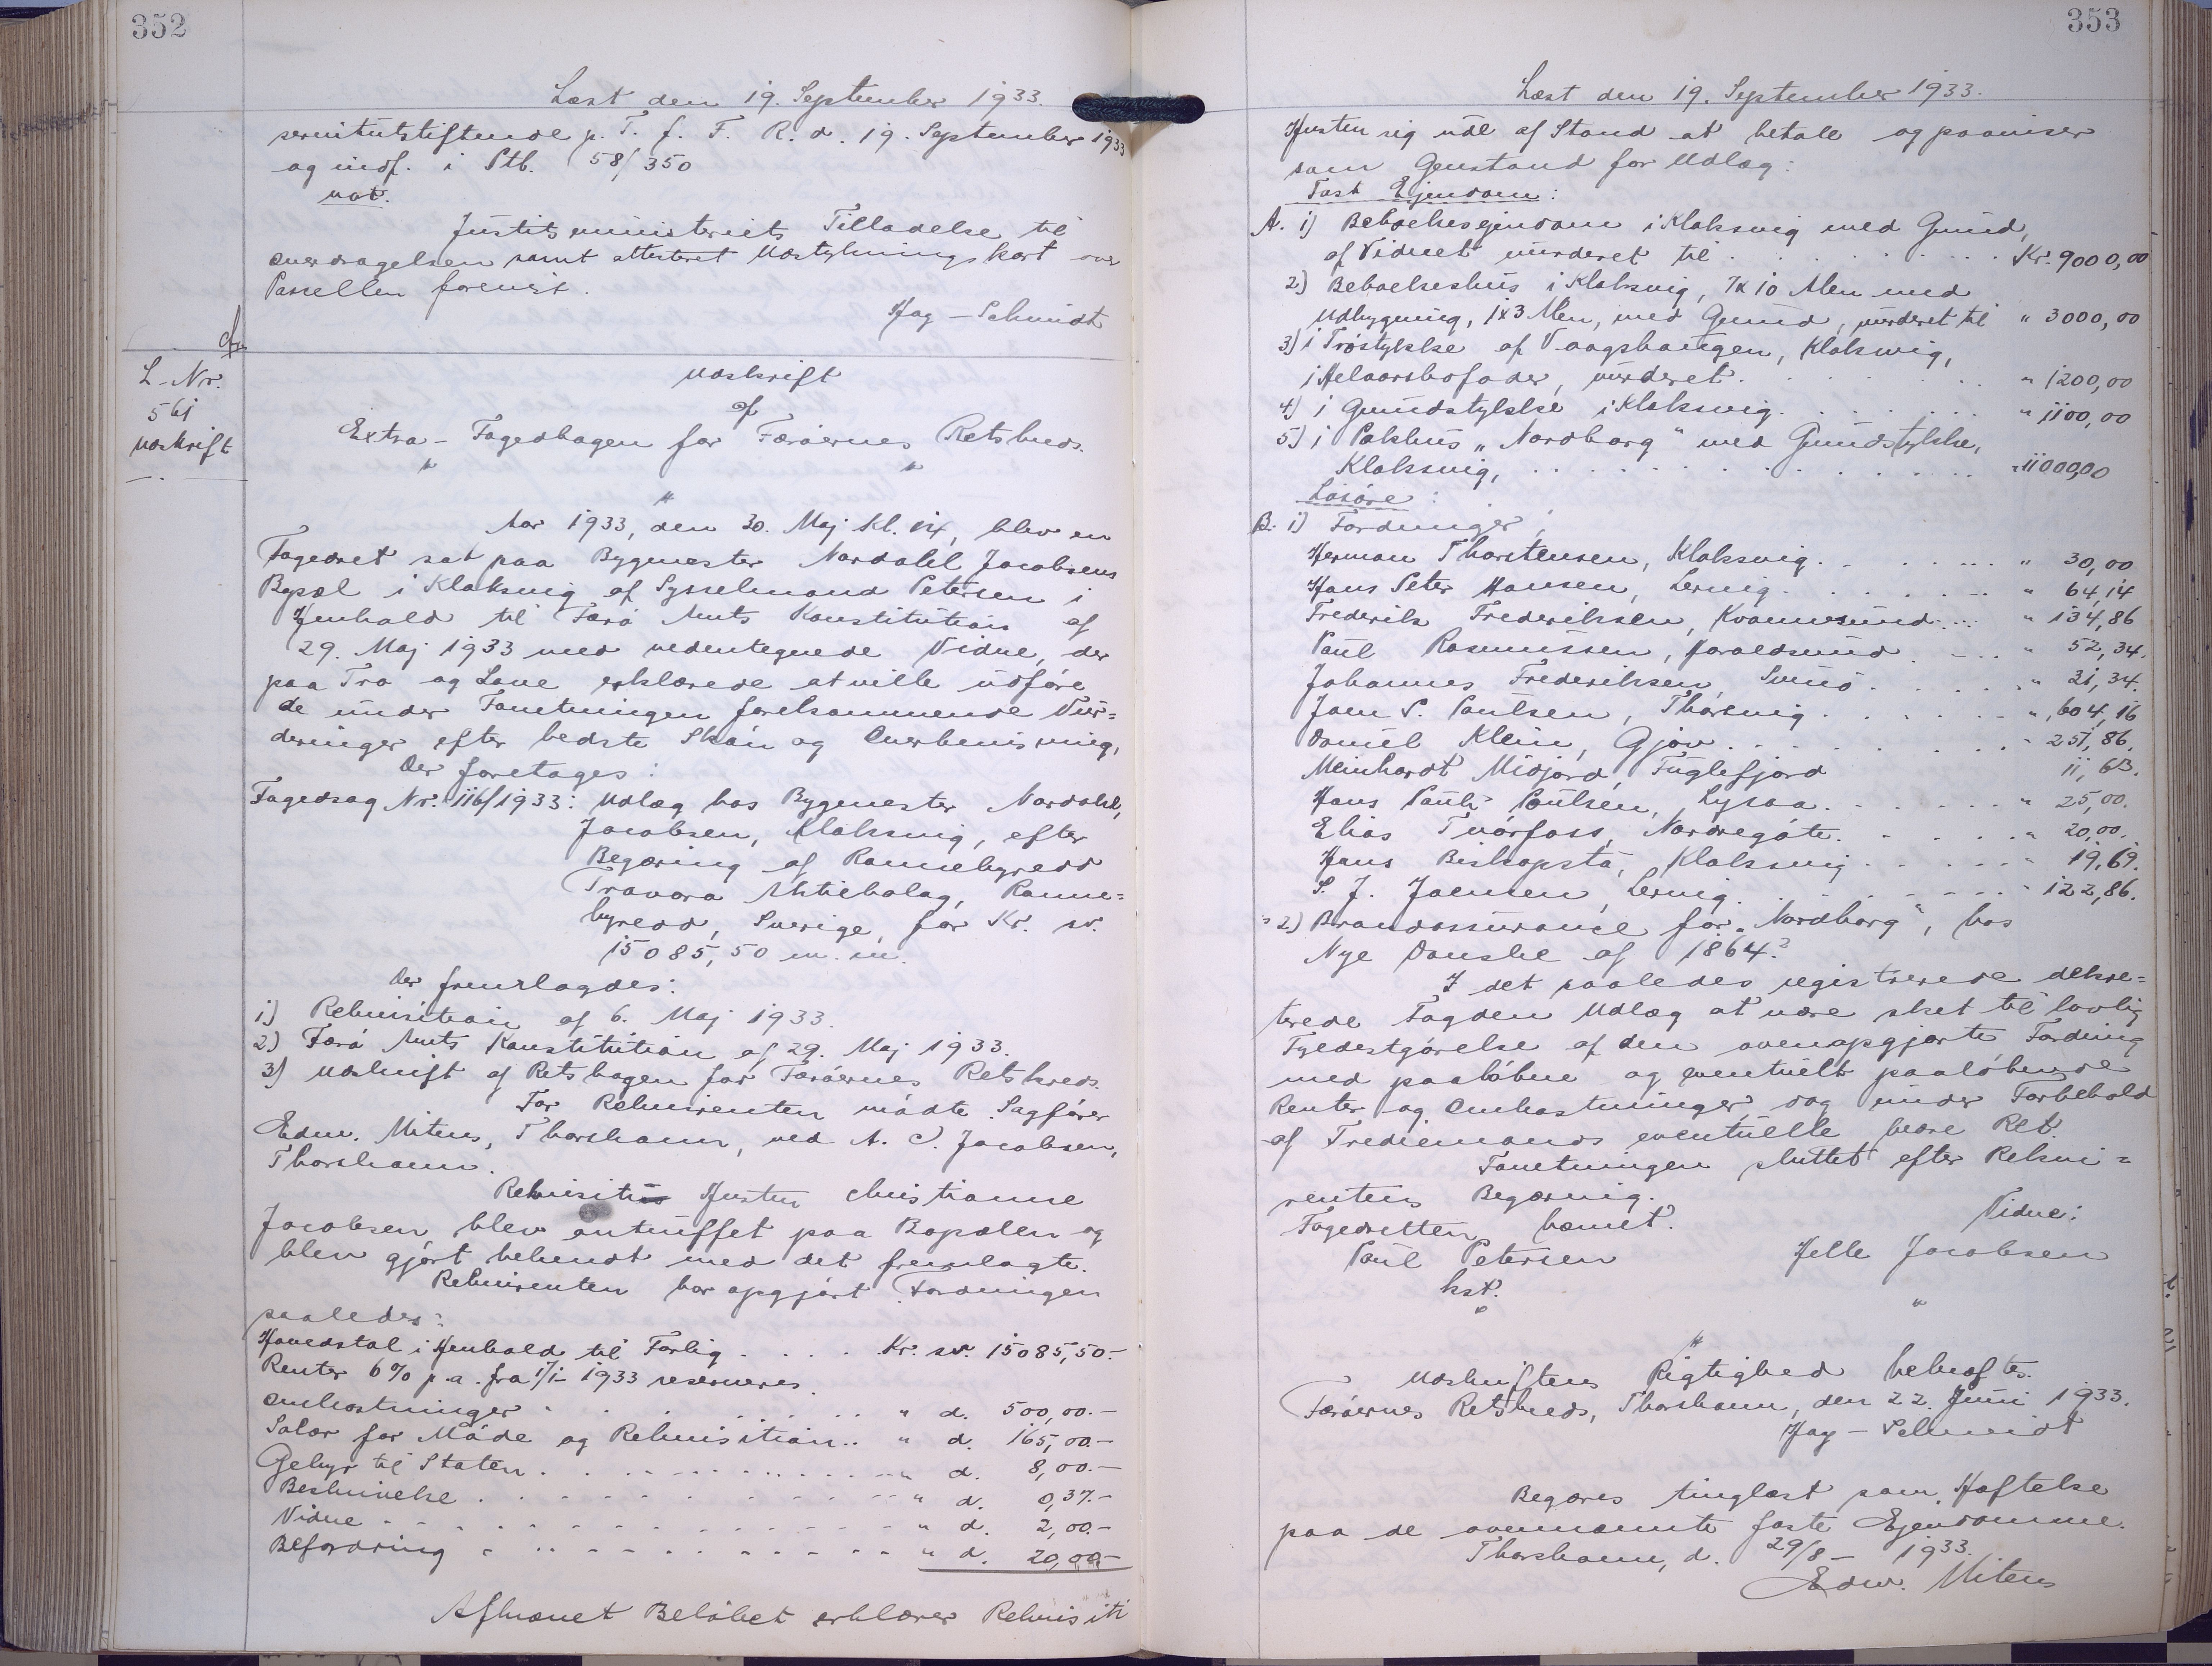 352
Læst den 19. September 1933.
servitutstiftende p. T. f. F. R. d. 19. September 1933
og indf. i Ptb. 58/350
not.
Justitsministeriets Tilladelse til
Overdragelsen samt attesteret Udstykningskort over
Parcellen forevist.
Hag-Schmidt
L-Nr.
561
Udskrift
Udskrift
af
Extra-Fogedbogen for Færøernes Retskreds.
Aar 1933, den 30. Maj Kl. 14, blev en
Fogedret sat paa Bygmester Nordahl Jacobsens
Bopæl i Klaksvig af Sysselmand Petersen i
Henhold til Færø Amts Konstitution af
29. Maj 1933 med nedentegnede Vidne, der
paa Tro og Love erklærede at ville udføre
de under Forretningen forekommende Vur=
deringer efter bedste Skøn og Overbevisning.
Der foretages:
Fogedsag Nr. 116/1933: Udlæg hos Bygmester Nordahl
Jacobsen, Klaksvig, efter
Begæring af Ronnebyredd
Trävaru Aktiebolag, Ronne=
byredd, Sverige, for Kr. sv.
15085,50 m. m.
Der fremlagdes:
1) Rekvisition af 6. Maj 1933.
2) Færø Amts Konstitution af 29. Maj 1933.
3) Udskrift af Retsbogen for Færøernes Retskreds.
For Rekvirenten mødte Sagfører
Edw. Mitens, Thorshavn, ved A. C. Jacobsen,
Thorshavn.
Rekvisiti Hustru Christianne
Jacobsen blev antruffet paa Bopælen og
blev gjørt bekendt med det fremlagte.
Rekvirenten har opgjørt Fordringen
saaledes:
Hovedstol i Henhold til Forlig . . . . Kr. sv. 15085,50.-
Renter 6% p.a. fra 1/1- 1933 reserveres.
Omkostninger . . . . . . . " d. 500,00.-
Salær for Møde og Rekvisition.. " d. 165,00.-
Gebyr til Staten . . . . . . . " d. 8,00.-
Beskrivelse . . . . . . . . " d. 0,37.-
Vidne . . . . . . . . . " d. 2,00.-
Befordring . . . . . . . . " d. 20,00.-
Afkrævet Beløbet erklærer Rekvisiti
353
Læst den 19. September 1933.
Hustru sig ude af Stand at betale og paaviser
som Genstand for Udlæg:
Fast Ejendom:
A. 1) Beboelsesejendom i Klaksvig med Grund,
af Vidnet vurderet til . . . . . . . Kr. 9000,00
2) Beboelseshus i Klaksvig, 7x10 Alen med
Udbygning, 1x3 Alen, med Grund, vurderet til " 3000,00
3) 1 Trøstykke af Vaagshaugen, Klaksvig,
1 Helaarskofoder, vurderet . . . . . . . " 1200,00
4) 1 Grundstykke i Klaksvig . . . . . . " 1100,00
5) 1 Pakhus "Nordborg" med Grundstykke,
Klaksvig, . . . . . . . . . . . " 11000,00
Løsøre:
B. 1) Fordringer:
Herman Thorstensen, Klaksvig . . . . . " 30,00
Hans Peter Hansen, Lervig . . . . . . " 64,14
Frederik Frederiksen, Kvannesund . . . " 134,86
Poul Rasmussen, Haraldsund . . . . " 52,34.
Johannes Frederiksen, Svinø . . . . . " 31,34.
Joen P. Poulsen, Thorsvig . . . . . . " 604,16
Daniel Klein, Gjov . . . . . . . . " 251,86.
Meinhardt Midjord, Fuglefjord 11,63.
Hans Pauli Poulsen, Lysaa . . . . . . " 25,00.
Elias Tvørfoss, Nordregøte . . . . . . " 20,00.
Hans Biskopstø, Klaksvig . . . . . " 19,69.
S. J. Joensen, Lervig . . . . . . . " 122,86.
2) Brandassurance for "Nordborg", hos
Nye Danske af 1864?
I det saaledes registrerede dekre=
terede Fogden Udlæg at være sket til lovlig
Fyldestgørelse af den ovenopgjørte Fordring
med paaløbne og eventuelt paaløbende
Renter og Omkostninger, dog under Forbehold
af Trediemands eventuelle bedre Ret.
Forretningen sluttet efter Rekvi=
rentens Begæring.
Fogedretten hævet.
Vidne:
Poul Petersen
Helle Jacobsen
kst.
Udskriftens Rigtighed bekræftes.
Færøernes Retskreds, Thorshavn, den 22. Juni 1933.
Hag-Schmidt
Begæres tinglæst som Hæftelse
paa de ovennævnte faste Ejendomme.
Thorshavn, d. 29/8- 1933.
Edw. Mitens